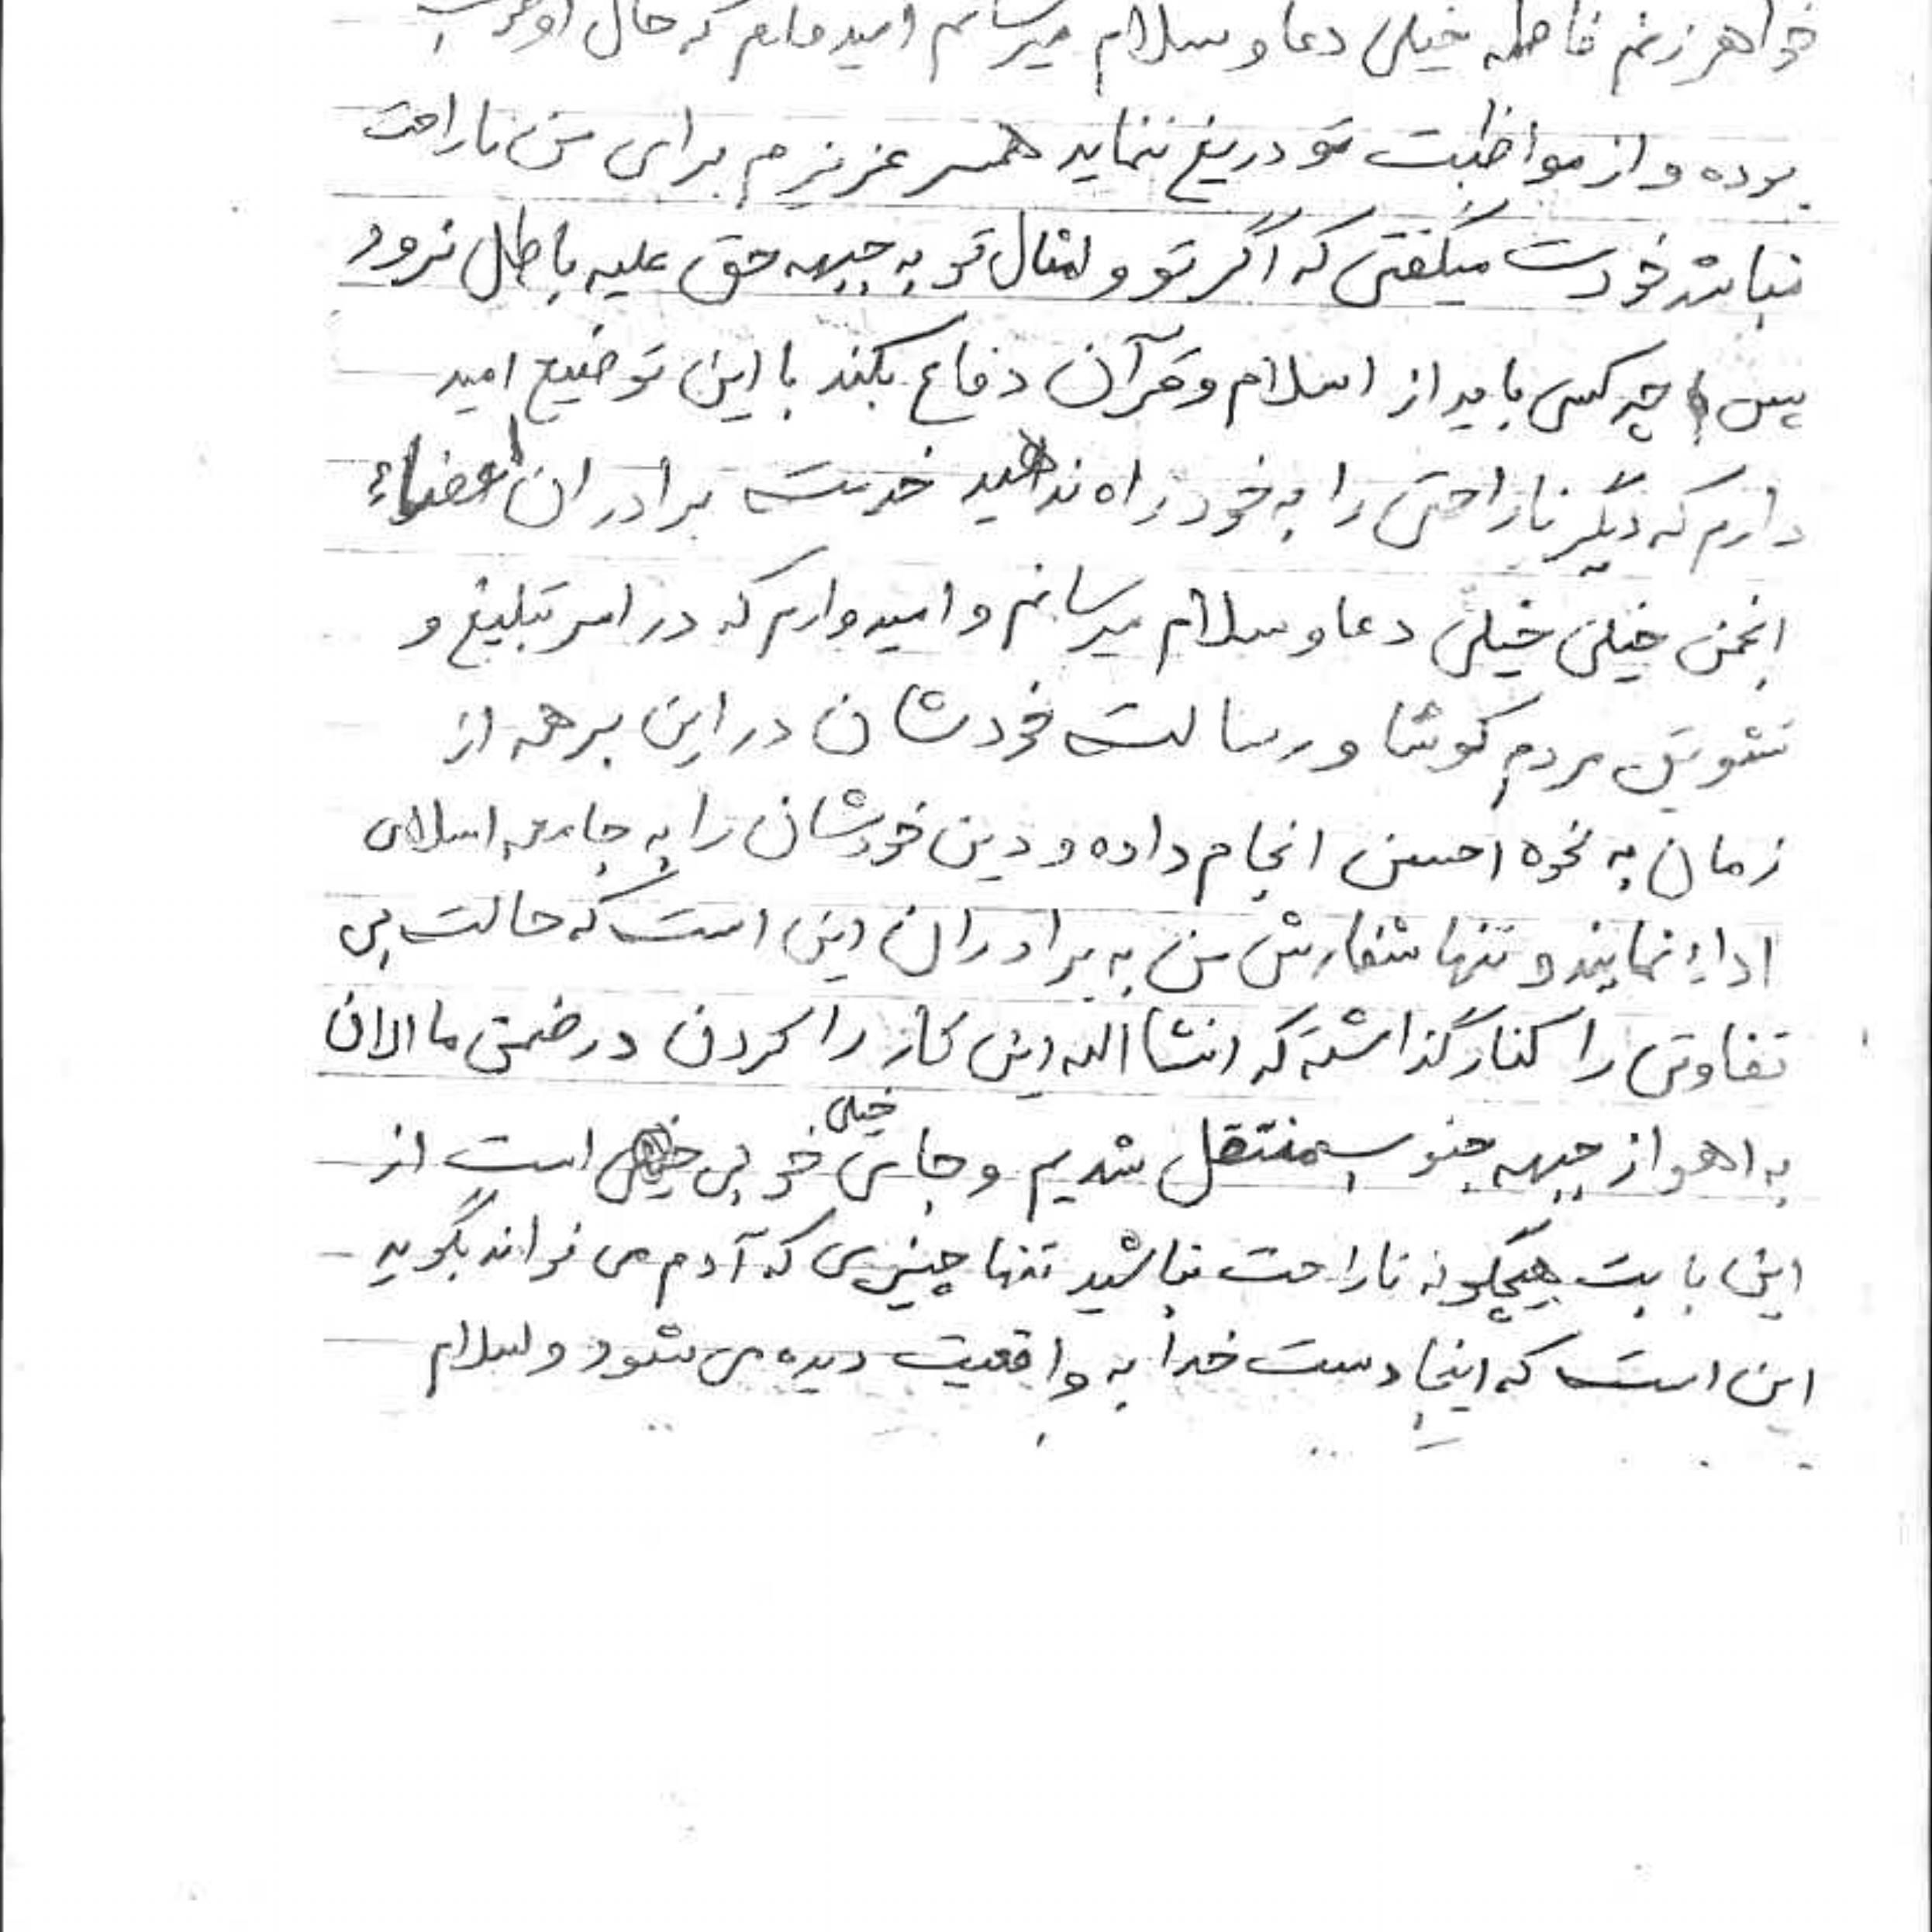 خواهرزنم فاطمه خیلی دعا و سلام میرسانم امیدوارم که حال او خوب
بوده و از مواظبت تو دریغ ننماید همسر عزیزم برای من ناراحت
نباشد خودت میگفتی که اگر تو و امثال تو به جبهه حق علیه باطل نرود
پس چه کسی باید از اسلام و قرآن دفاع بکند با این توضیع امید
دارم که دیگر ناراحتی را به خود راه ندهید خدمت برادران اعضاء
انجمن خیلی خیلی دعا و سلام میرسانم و امیدوارم که در امر تبلیغ و
تشویق مردم کوشا و رسالت خودشان در این برهه از
زمان به نحوه احسن انجام داده و دین خودشان را به جامعه اسلامی
اداء نمایند و تنها شفارش من به برادران این است که حالت بی
تفاوتی را کنار گذاشته که انشا الله این کار را کردن در ضمن ما الان
به اهواز جبهه جنوب منتقل شدیم و جای خیلی خوبی است از
این بابت هیچگونه ناراحت نباشید تنها چیزی که آدم می تواند بگوید
این است که اینجا دست خدا به واقعیت دیده می شود ولسلام